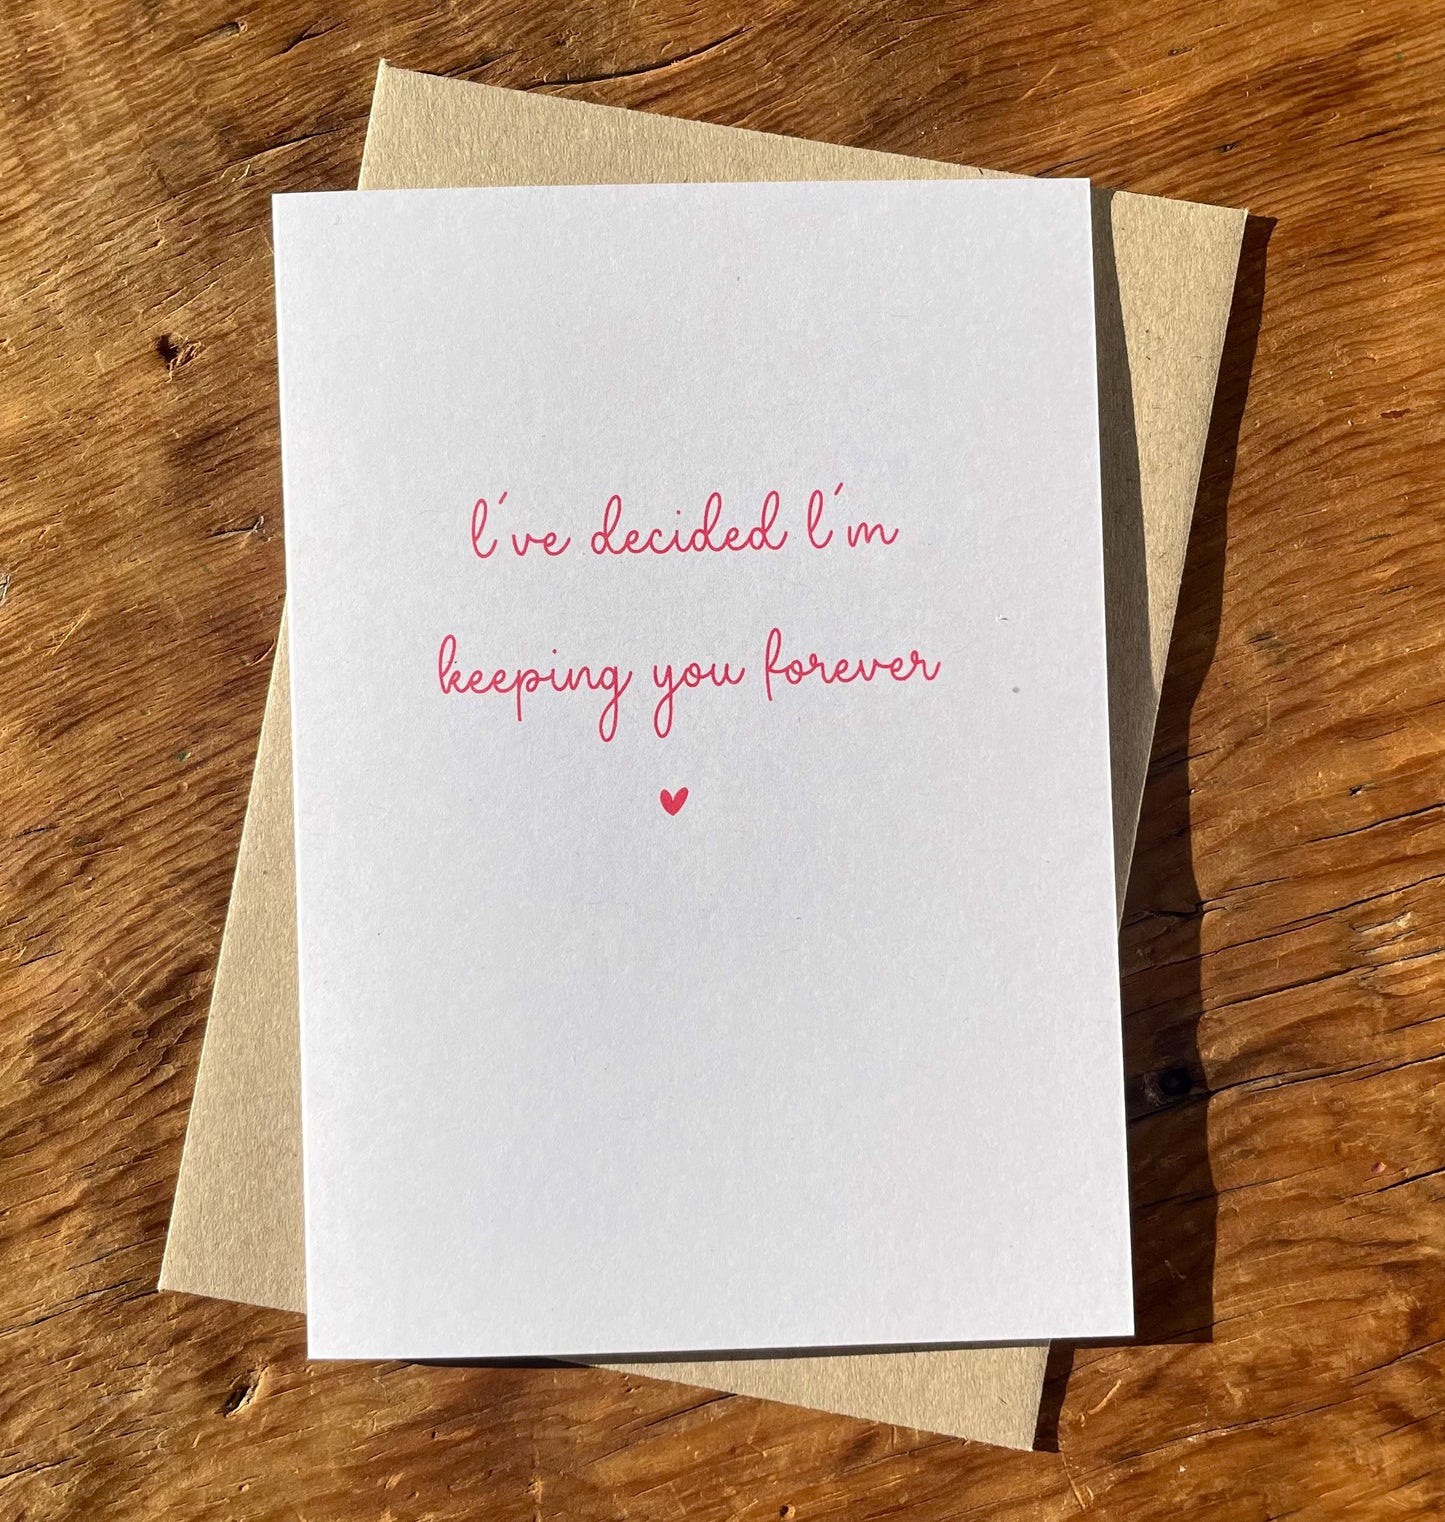 I've decided I'm
keeping you forever